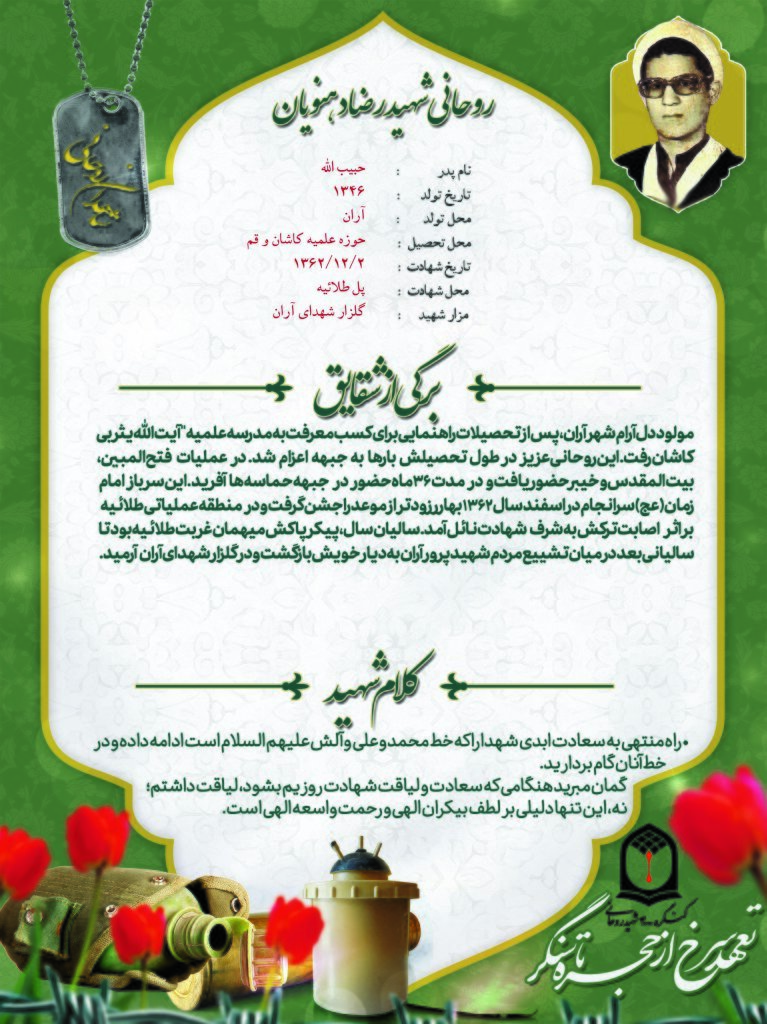 روحانی شهید رضا دهنویان
نام پدر : حبیب الله
تاریخ تولد : ۱۳۴۶
محل تولد : آران
محل تحصیل : حوزه علمیه کاشان و قم
تاریخ شهادت : ۱۳۶۲/۱۲/۲
محل شهادت : پل طلائیه
مزار شهید : گلزار شهدای آران
برگی از شقایق
مولود دل آرام شهر آران، پس از تحصیلات راهنمایی برای کسب معرفت به مدرسه علمیه "آیت الله یثربی
کاشان رفت. این روحانی عزیز در طول تحصیلش بارها به جبهه اعزام شد. در عملیات فتح المبین،
بیت المقدس و خیبر حضور یافت و در مدت ۳۶ ماه حضور در جبهه حماسه‌ها آفرید. این سرباز امام
زمان (عج) سرانجام در اسفند سال ۱۳۶۲ بهار رزودتر از موعد را جشن گرفت و در منطقه عملیاتی طلائیه
بر اثر اصابت ترکش به شرف شهادت نائل آمد. سالیان سال، پیکر پاکش میهمان غربت طلائیه بود تا
سالیانی بعد در میان تشییع مردم شهید پرور آران به دیار خویش بازگشت و در گلزار شهدای آران آرمید.
کلام شهید
• راه منتهی به سعادت ابدی شهدا را که خط محمد و علی و آلش علیهم السلام است ادامه داده و در
خط آنان گام بردارید.
گمان مبرید هنگامی که سعادت و لیاقت شهادت روزیم بشود، لیاقت داشتم؛
نه، این تنها دلیلی بر لطف بیکران الهی و رحمت واسعه الهی است.
کنگره شهید روحانی
تعهد سرخ از حجره تا سنگر